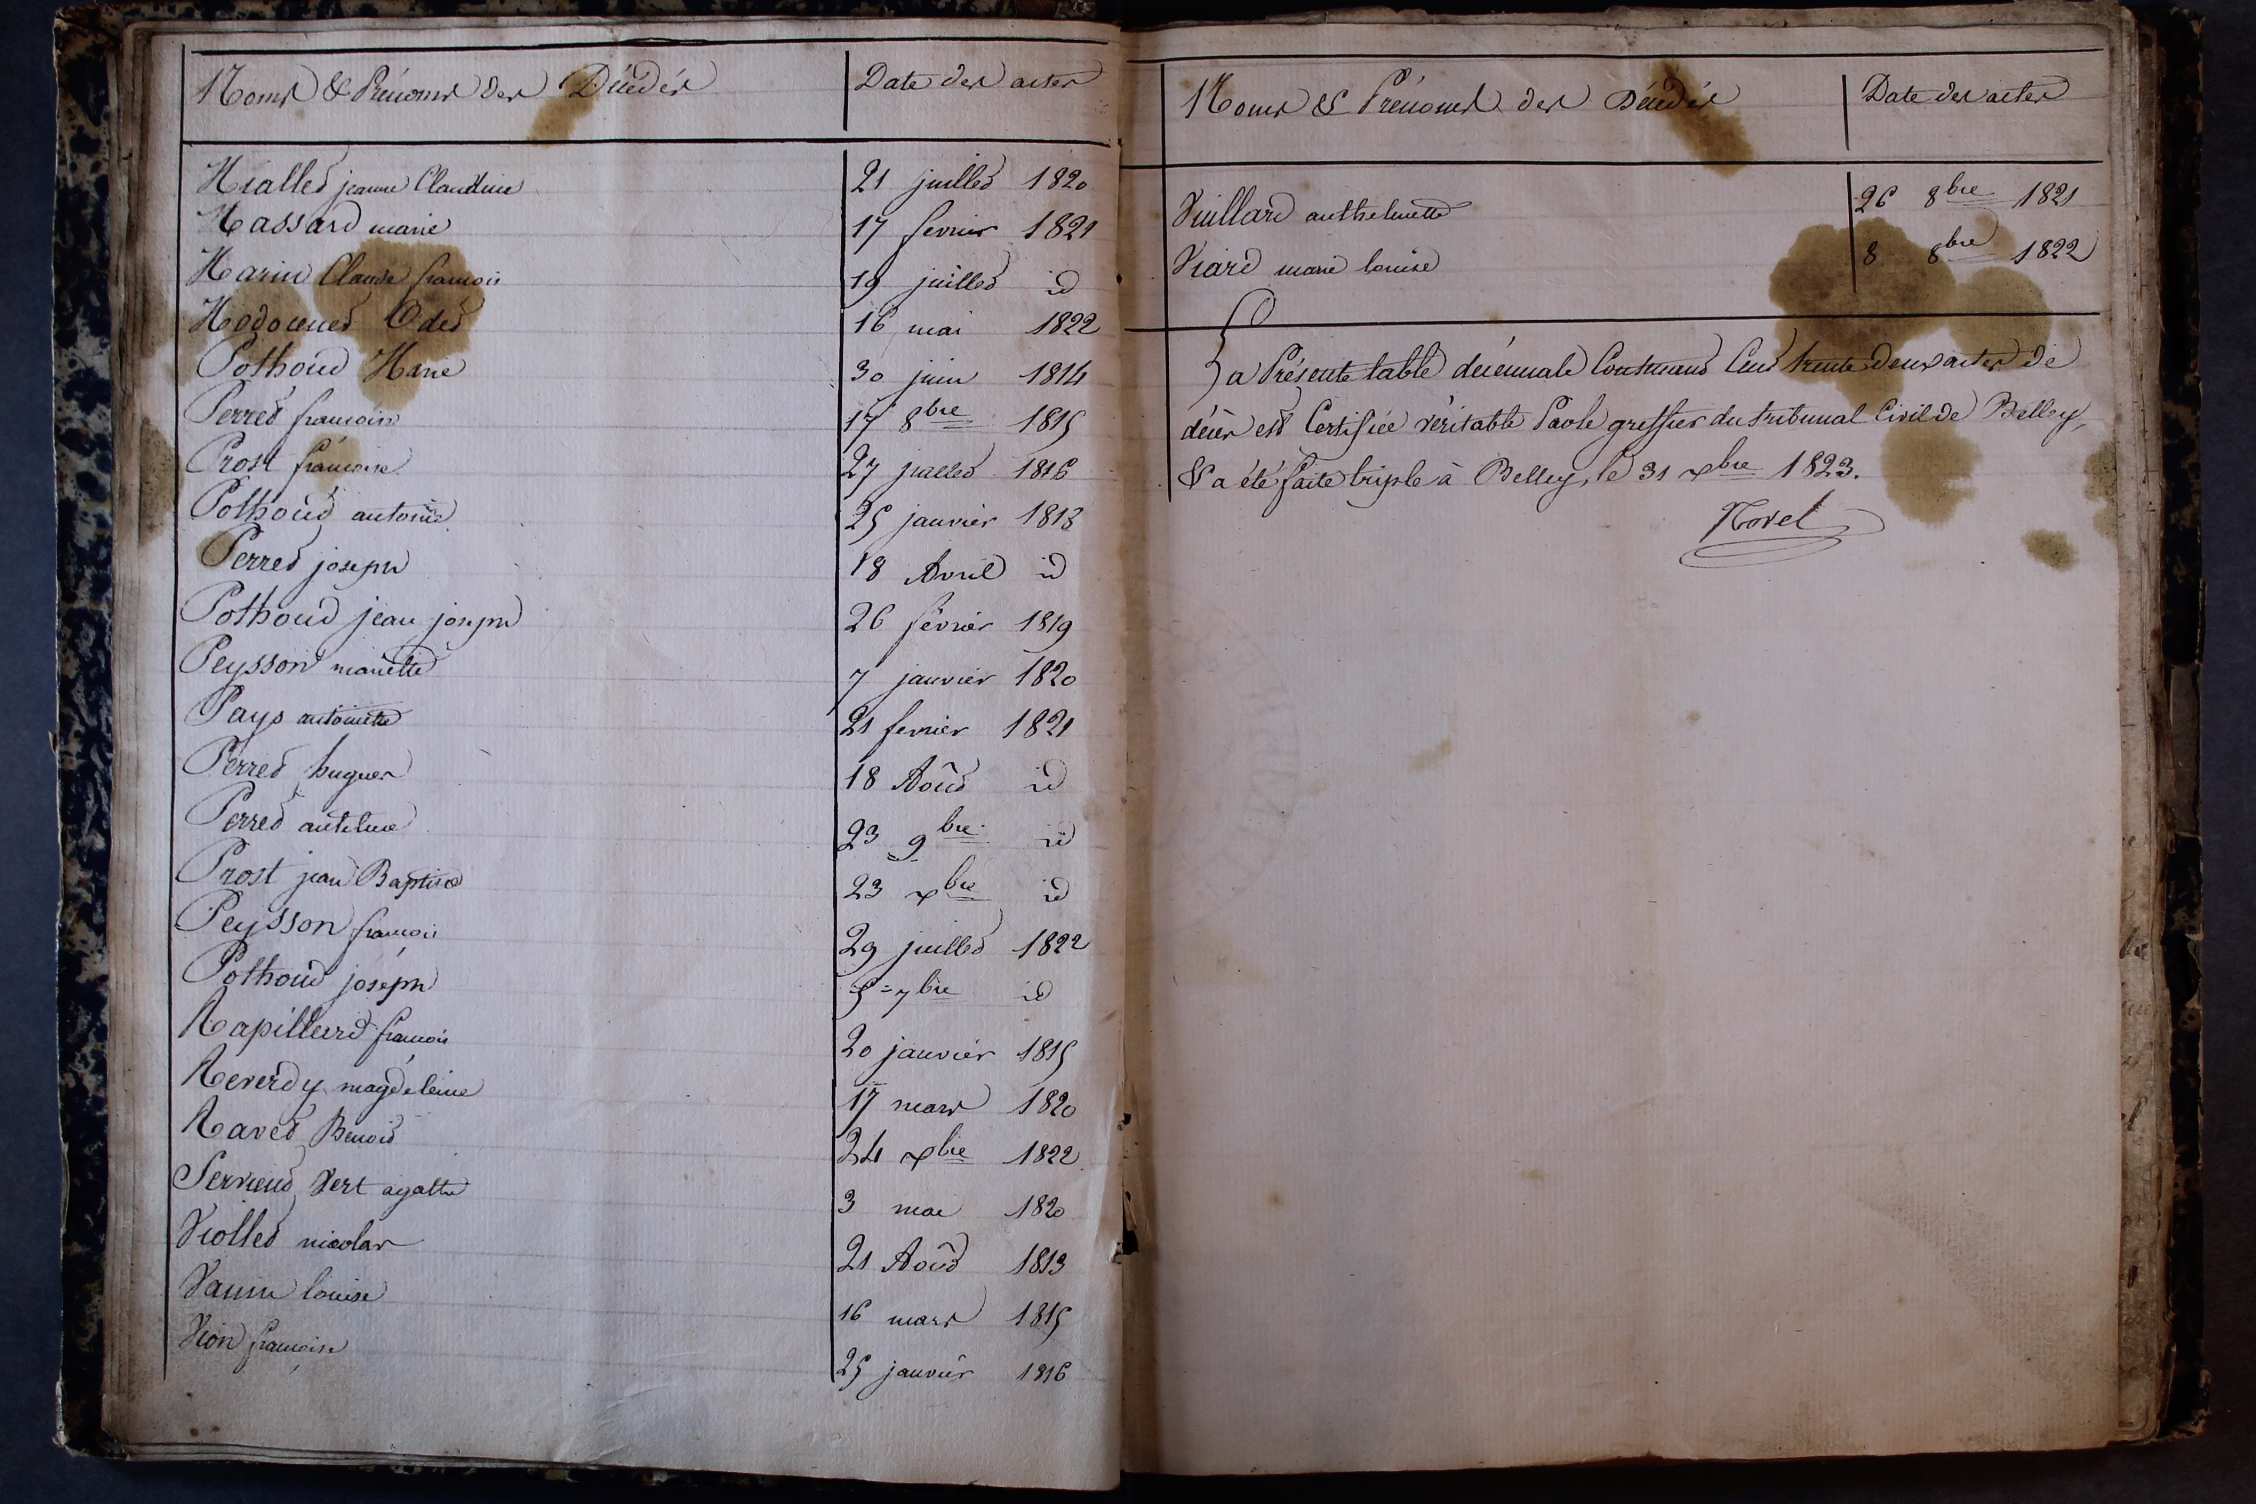 Noms & Prénoms des Décédés Date des actes
Miallet jeanne Claudine 21 juillet 1820
Massard marie 17 fevrier 1821
Marin Claude françois 19 juillet id
16 mai 1822
Pothoud Marie 30 juin 1814
Perret françoise 17 8bre 1815
Prost françoise 27 juillet 1816
Pothoud antoine 25 janvier 1818
Perret joseph 18 Avril id
Pothoud jean joseph 26 février 1819
Peysson mariette 7 janvier 1820
Pays antoinette 21 fevrier 1821
Perret hugues 18 Août id
Perret antelme 23 9bre id
Prost jean Baptiste 23 xbre id
Peysson françois 29 juillet 1822
Pothoud joseph 5 7bre id
Rapillard françois 20 janvier 1815
Reverdy magdeleine 17 mars 1820
Ravet Benoit 24 xbre 1822
Servieud Vert agathe 3 mai 1820
Viollet nicolas 21 Août 1813
louise 16 mars 1815
Vion françoise 25 janvier 1816
Noms & Prénoms des Décédés Date des actes
Vuillard anthelmette 26 8bre 1821
Viard marie louise 8 8bre 1822
La Présente table décennale Contenant Cent trente deux actes de
décès est Certifiée véritable Par le greffier du tribunal Civil de Belley,
& a été faite triple à Belley, le 31 xbre 1823.